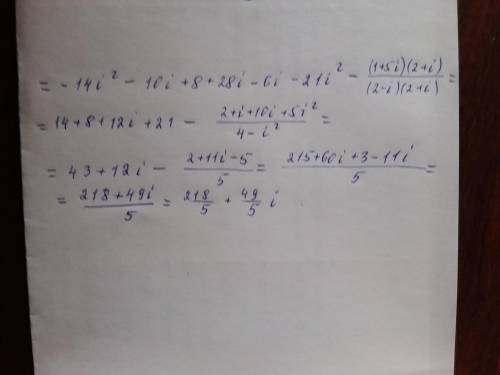 = - 14i² - 10i + 8 + 28i - 6i - 21i² - (1+5i)(2+i)/(2-i)(2+i) =
= 14 + 8 + 12i + 21 - (2+i+10i+5i²)/(4-i²) =
= 43 + 12i - (2+11i-5)/5 = (215+60i+3-11i)/5 =
= (218+49i)/5 = 218/5 + 49/5 i